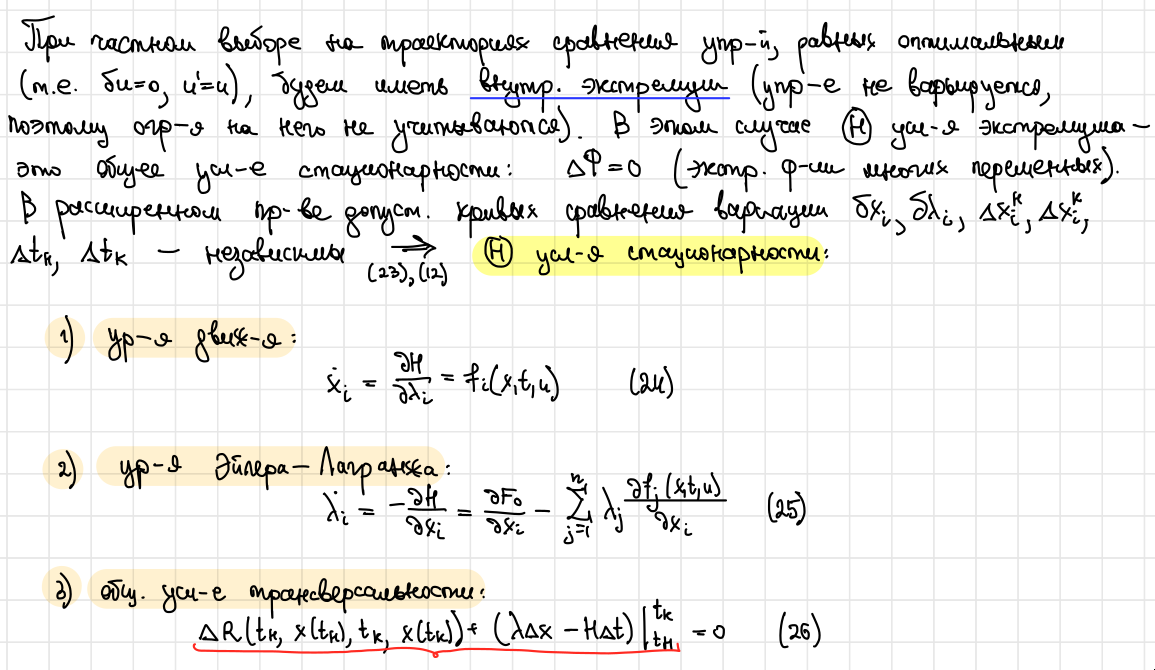 При частном выборе на траекториях сравнения упр-й, равных оптимальным
(т.е. δu=0, u'=u), будем иметь внутр. экстремум (упр-е не варьируется,
поэтому огр-я на него не учитываются). В этом случае Ⓗ усл-я экстремума –
это общее усл-е стационарности: ΔΦ=0 (экстр. ф-ии многих переменных).
В расширенном пр-ве допуст. кривых сравнения вариации δxᵢ, δλᵢ, Δxᵢᴷ, Δxᵢᴷ,
Δtₙ, Δtₖ – независимы ⟹ (23),(12) Ⓗ усл-я стационарности:
1) ур-я движ-я:
ẋᵢ = ∂H/∂λᵢ = fᵢ(x,t,u) (24)
2) ур-я Эйлера – Лагранжа:
λ̇ᵢ = -∂H/∂xᵢ = ∂F₀/∂xᵢ – Σⱼ₌₁ⁿ λⱼ ∂fⱼ(x,t,u)/∂xᵢ (25)
3) общ. усл-е трансверсальности:
ΔR(tₙ, x(tₙ), tₖ, x(tₖ)) + (λΔx – HΔt)|ₜₙᵗᴷ = 0 (26)